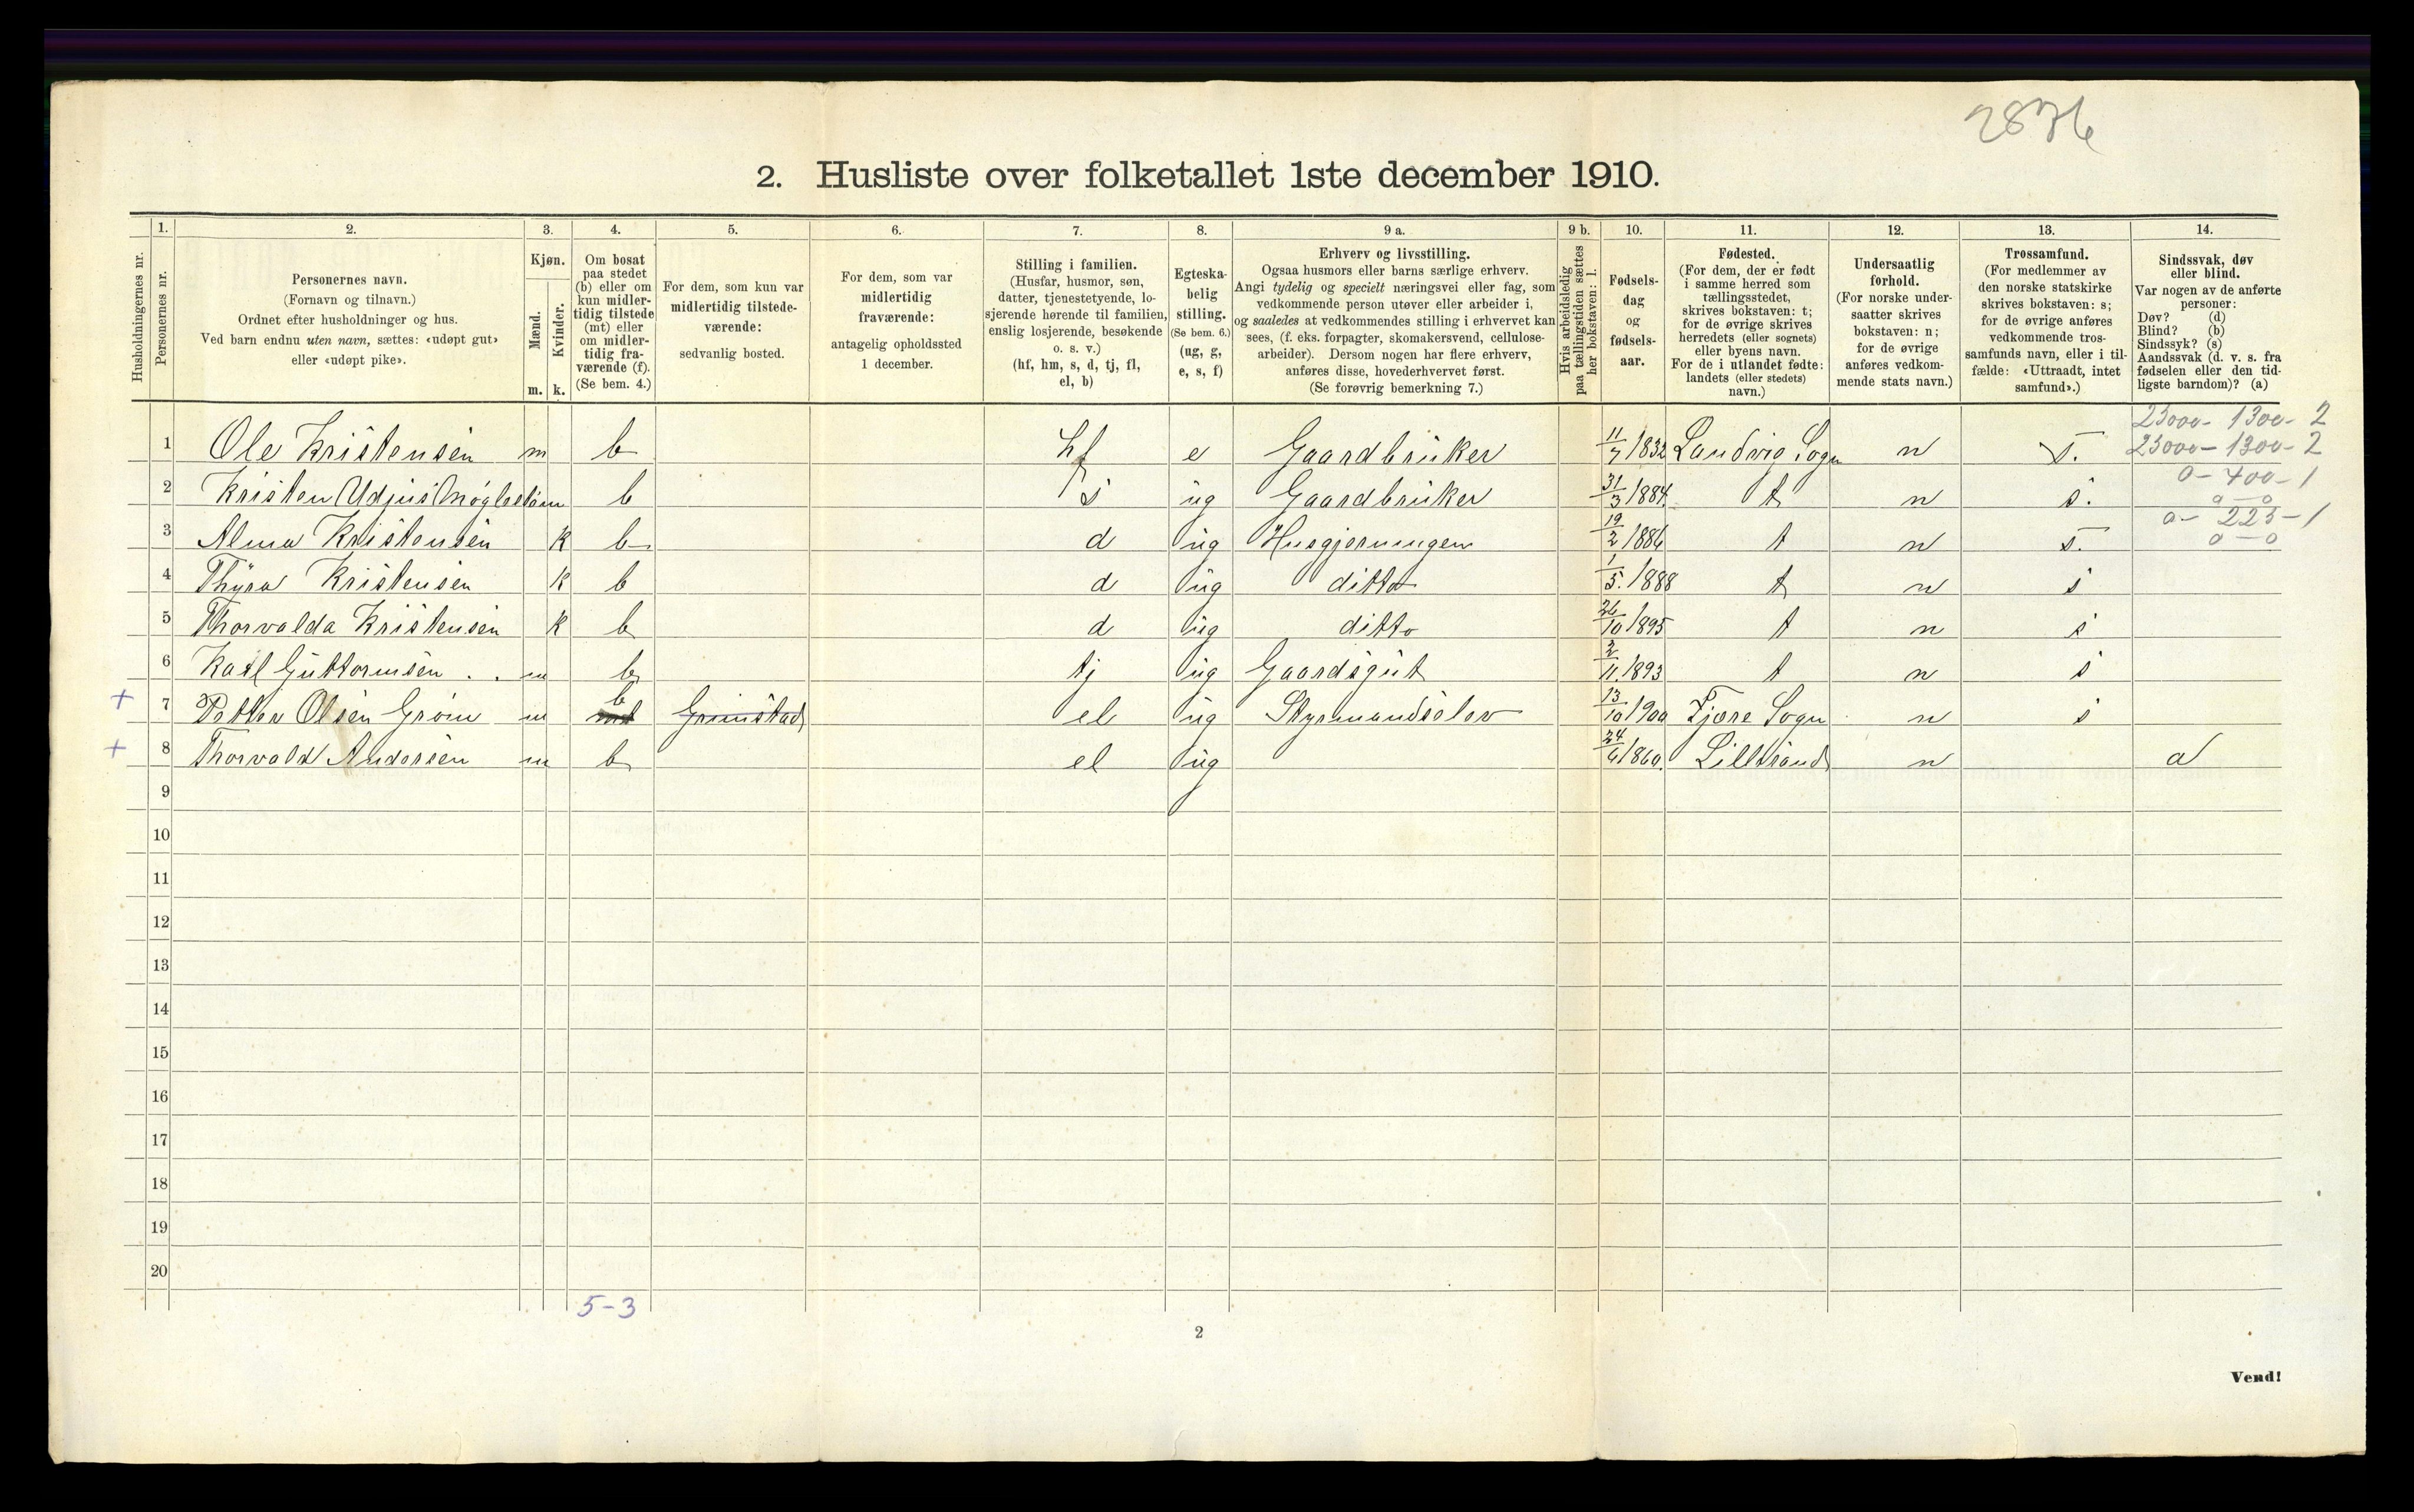 2876
2. Husliste over folketallet 1ste december 1910.
Husholdningernes nr.
1.
Personernes nr.
2.
Personernes navn.
(Fornavn og tilnavn.)
Ordnet efter husholdninger og hus.
Ved barn endnu uten navn, sættes: «udøpt gut»
eller «udøpt pike».
3.
Kjøn.
Mænd.
Kvinder.
m.
k.
4.
Om bosat
paa stedet
(b) eller om
kun midler-
tidig tilstede
(mt) eller
om midler-
tidig fra-
værende (f).
(Se bem. 4.)
5.
For dem, som kun var
midlertidig tilstede-
værende:
sedvanlig bosted.
6.
For dem, som var
midlertidig
fraværende:
antagelig opholdssted
1 december.
7.
Stilling i familien.
(Husfar, husmor, søn,
datter, tjenestetyende, lo-
sjerende hørende til familien,
enslig losjerende, besøkende
o. s. v.)
(hf, hm, s, d, tj, fl,
el, b)
8.
Egteska-
belig
stilling.
(Se bem. 6.)
(ug, g,
e, s, f)
9 a.
Erhverv og livsstilling.
Ogsaa husmors eller barns særlige erhverv.
Angi tydelig og specielt næringsvei eller fag, som
vedkommende person utøver eller arbeider i,
og saaledes at vedkommendes stilling i erhvervet kan
sees, (f. eks. forpagter, skomakersvend, cellulose-
arbeider). Dersom nogen har flere erhverv,
anføres disse, hovederhvervet først.
(Se forøvrig bemerkning 7.)
9 b.
Hvis arbeidsledig
paa tællingstiden sættes
her bokstaven: l.
10.
Fødsels-
dag
og
fødsels-
aar.
11.
Fødested.
(For dem, der er født
i samme herred som
tællingsstedet,
skrives bokstaven: t;
for de øvrige skrives
herredets (eller sognets)
eller byens navn.
For de i utlandet fødte:
landets (eller stedets)
navn.)
12.
Undersaatlig
forhold.
(For norske under-
saatter skrives
bokstaven: n;
for de øvrige
anføres vedkom-
mende stats navn.)
13.
Trossamfund.
(For medlemmer av
den norske statskirke
skrives bokstaven: s;
for de øvrige anføres
vedkommende tros-
samfunds navn, eller i til-
fælde: «Uttraadt, intet
samfund».)
14.
Sindssvak, døv
eller blind.
Var nogen av de anførte
personer:
Døv? (d)
Blind? (b)
Sindssyk? (s)
Aandssvak (d. v. s. fra
fødselen eller den tid-
ligste barndom)? (a)
25000- 1300- 2
1 Ole Kristensen m b hf e Gaardbruker 11/7 1832 Landvig Sogn n s. 25000- 1300- 2
0- 400- 1
2 Kristen Udjus Møglestøm b s ug Gaardbruker 31/3 1884. t n s. 0-0
0- 225- 1
3 Alma Kristensen k b d ug Husgjerningen 19/2 1886 t n s. 0-0
4 Thyra Kristensen k b d ug ditto 1/5. 1888 t n s
5 Thorvalda Kristensen k b d ug ditto 26/10 1895 t n s
6 Karl Guttormsen . . m b tj ug Gaardsgut 2/11. 1893 t n s
+ 7 Petter Olsen Grøm m mt b Grimstad el ug Styrmandselev 13/10 1900 Fjære Sogn n s
+ 8 Thorvald Andersen m b el ug 24/6 1860. Lillesand n a
9
10
11
12
13
14
15
16
17
18
19
20
5-3
2
Vend!